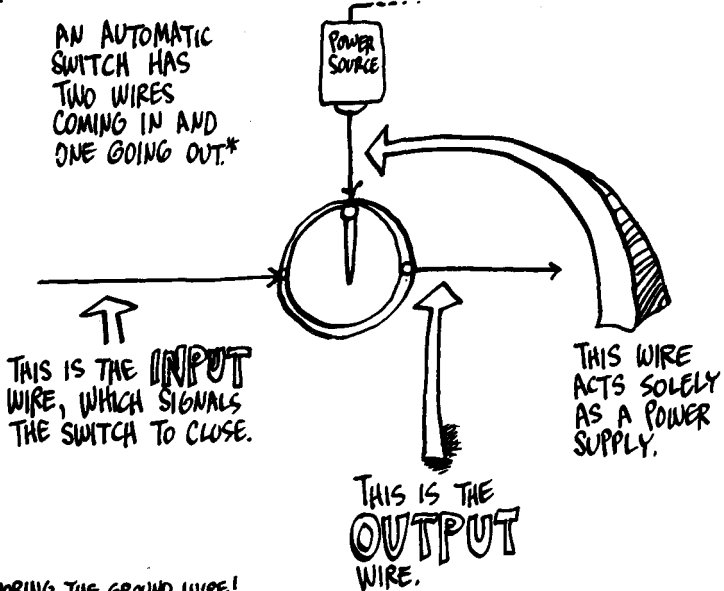 AN AUTOMATIC
SWITCH HAS
TWO WIRES
COMING IN AND
ONE GOING OUT.*
POWER
SOURCE
THIS IS THE INPUT
WIRE, WHICH SIGNALS
THE SWITCH TO CLOSE.
THIS WIRE
ACTS SOLELY
AS A POWER
SUPPLY.
THIS IS THE
OUTPUT
WIRE.
THE GROUND WIRE!